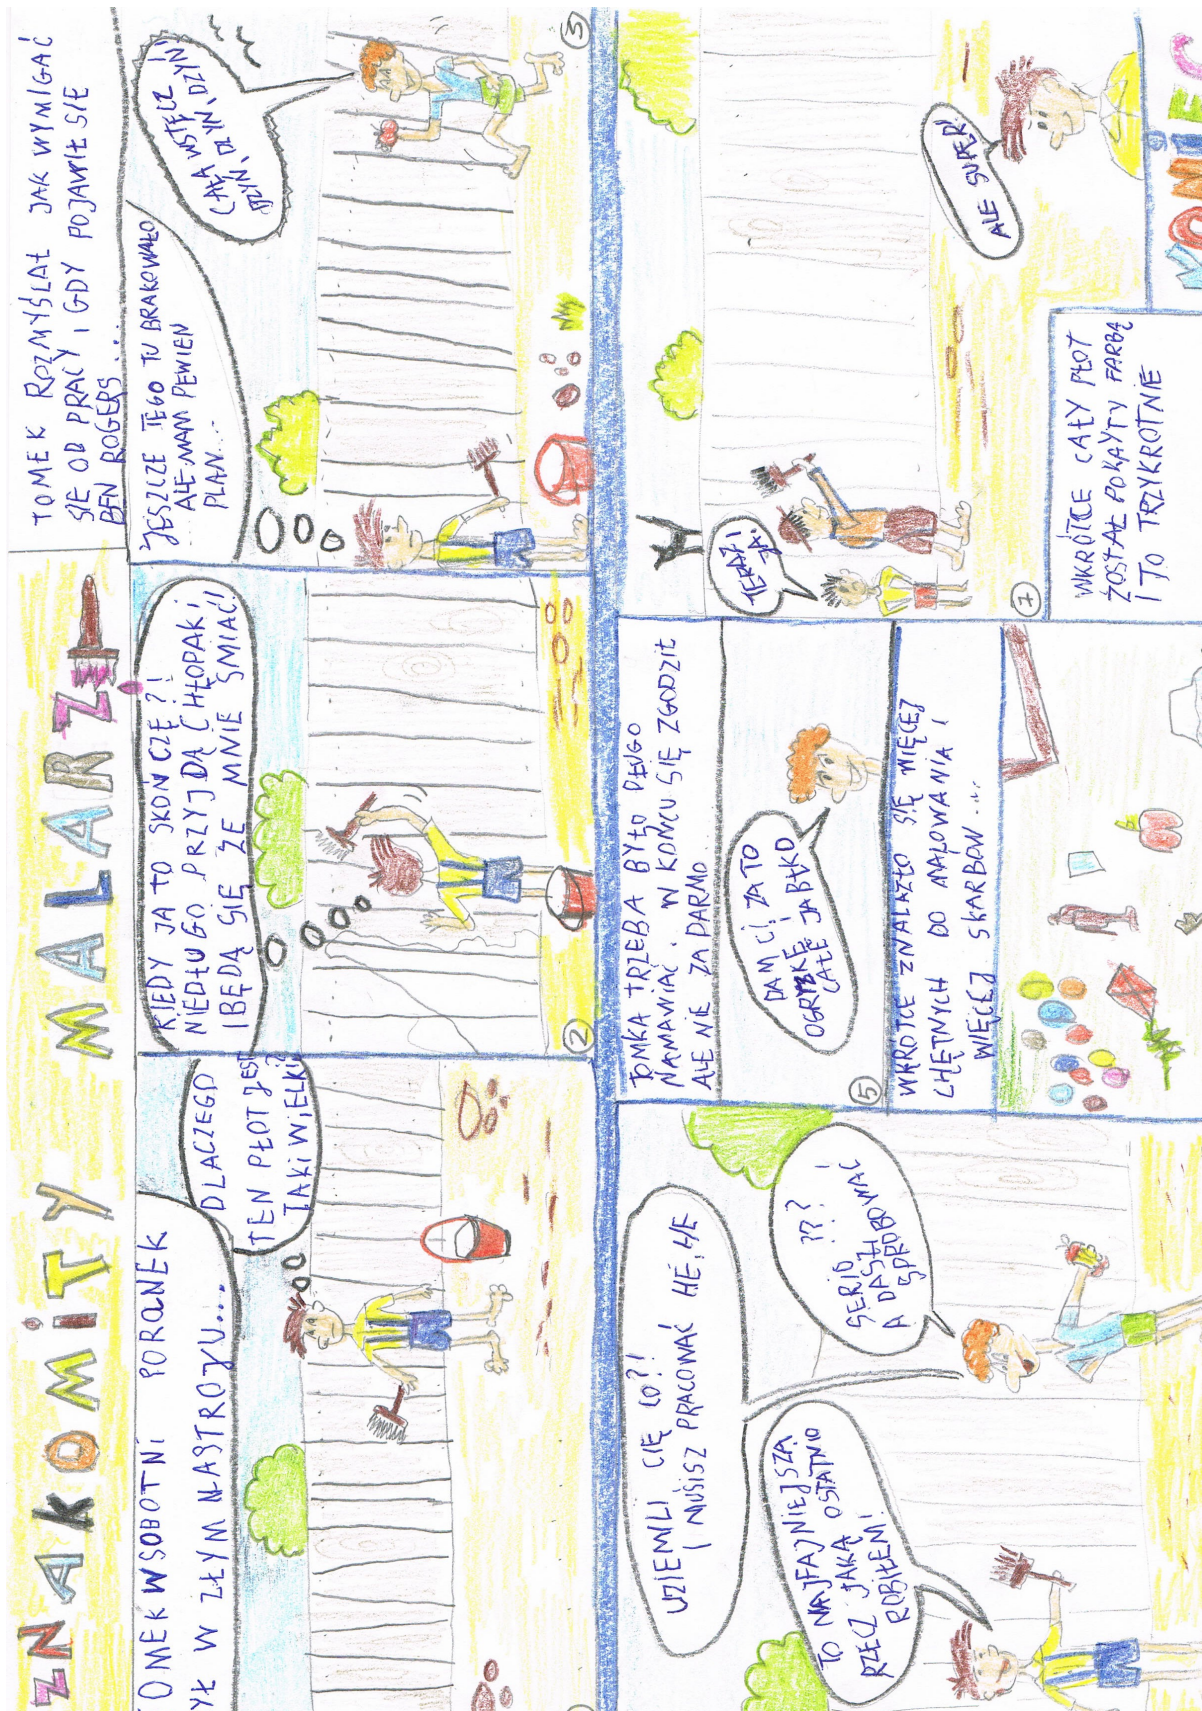 ZNAKOMITY MALARZ
OMEK W SOBOTNI PORANEK
YŁ W ZŁYM NASTROJU...
DLACZEGO
TEN PŁOT JEST
TAKI WIELKI?
KIEDY JA TO SKOŃCZĘ?!
NIEDŁUGO PRZYJDĄ CHŁOPAKI
I BĘDĄ SIĘ ZE MNIE ŚMIAĆ!
2
TOMEK ROZMYŚLAŁ JAK WYMIGAĆ
SIĘ OD PRACY I GDY POJAWIŁ SIĘ
BEN ROGERS...
JESZCZE TEGO TU BRAKOWAŁO
ALE MAM PEWIEN
PLAN...
CAŁA WSTECZ
DZYŃ, DZYŃ, DZYŃ
3
UZIEMILI CIĘ CO?!
I MUSISZ PRACOWAĆ HE, HE
TO NAJFAJNIEJSZA
RZECZ JAKĄ OSTATNIO
ROBIŁEM!
SERIO ???!
A DASZ
SPRÓBOWAĆ
TOMKA TRZEBA BYŁO DŁUGO
NAMAWIAĆ. W KOŃCU SIĘ ZGODZIŁ
ALE NIE ZA DARMO.
DAM CI ZA TO
OGRYZKĘ!
CAŁE JABŁKO
5
WKRÓTCE ZNALAZŁO SIĘ WIĘCEJ
CHĘTNYCH DO MALOWANIA I
WIĘCEJ SKARBÓW....
TERAZ
JA!
ALE SUPER!
7
WKRÓTCE CAŁY PŁOT
ZOSTAŁ POKRYTY FARBĄ
I TO TRZYKROTNIE
KONIEC